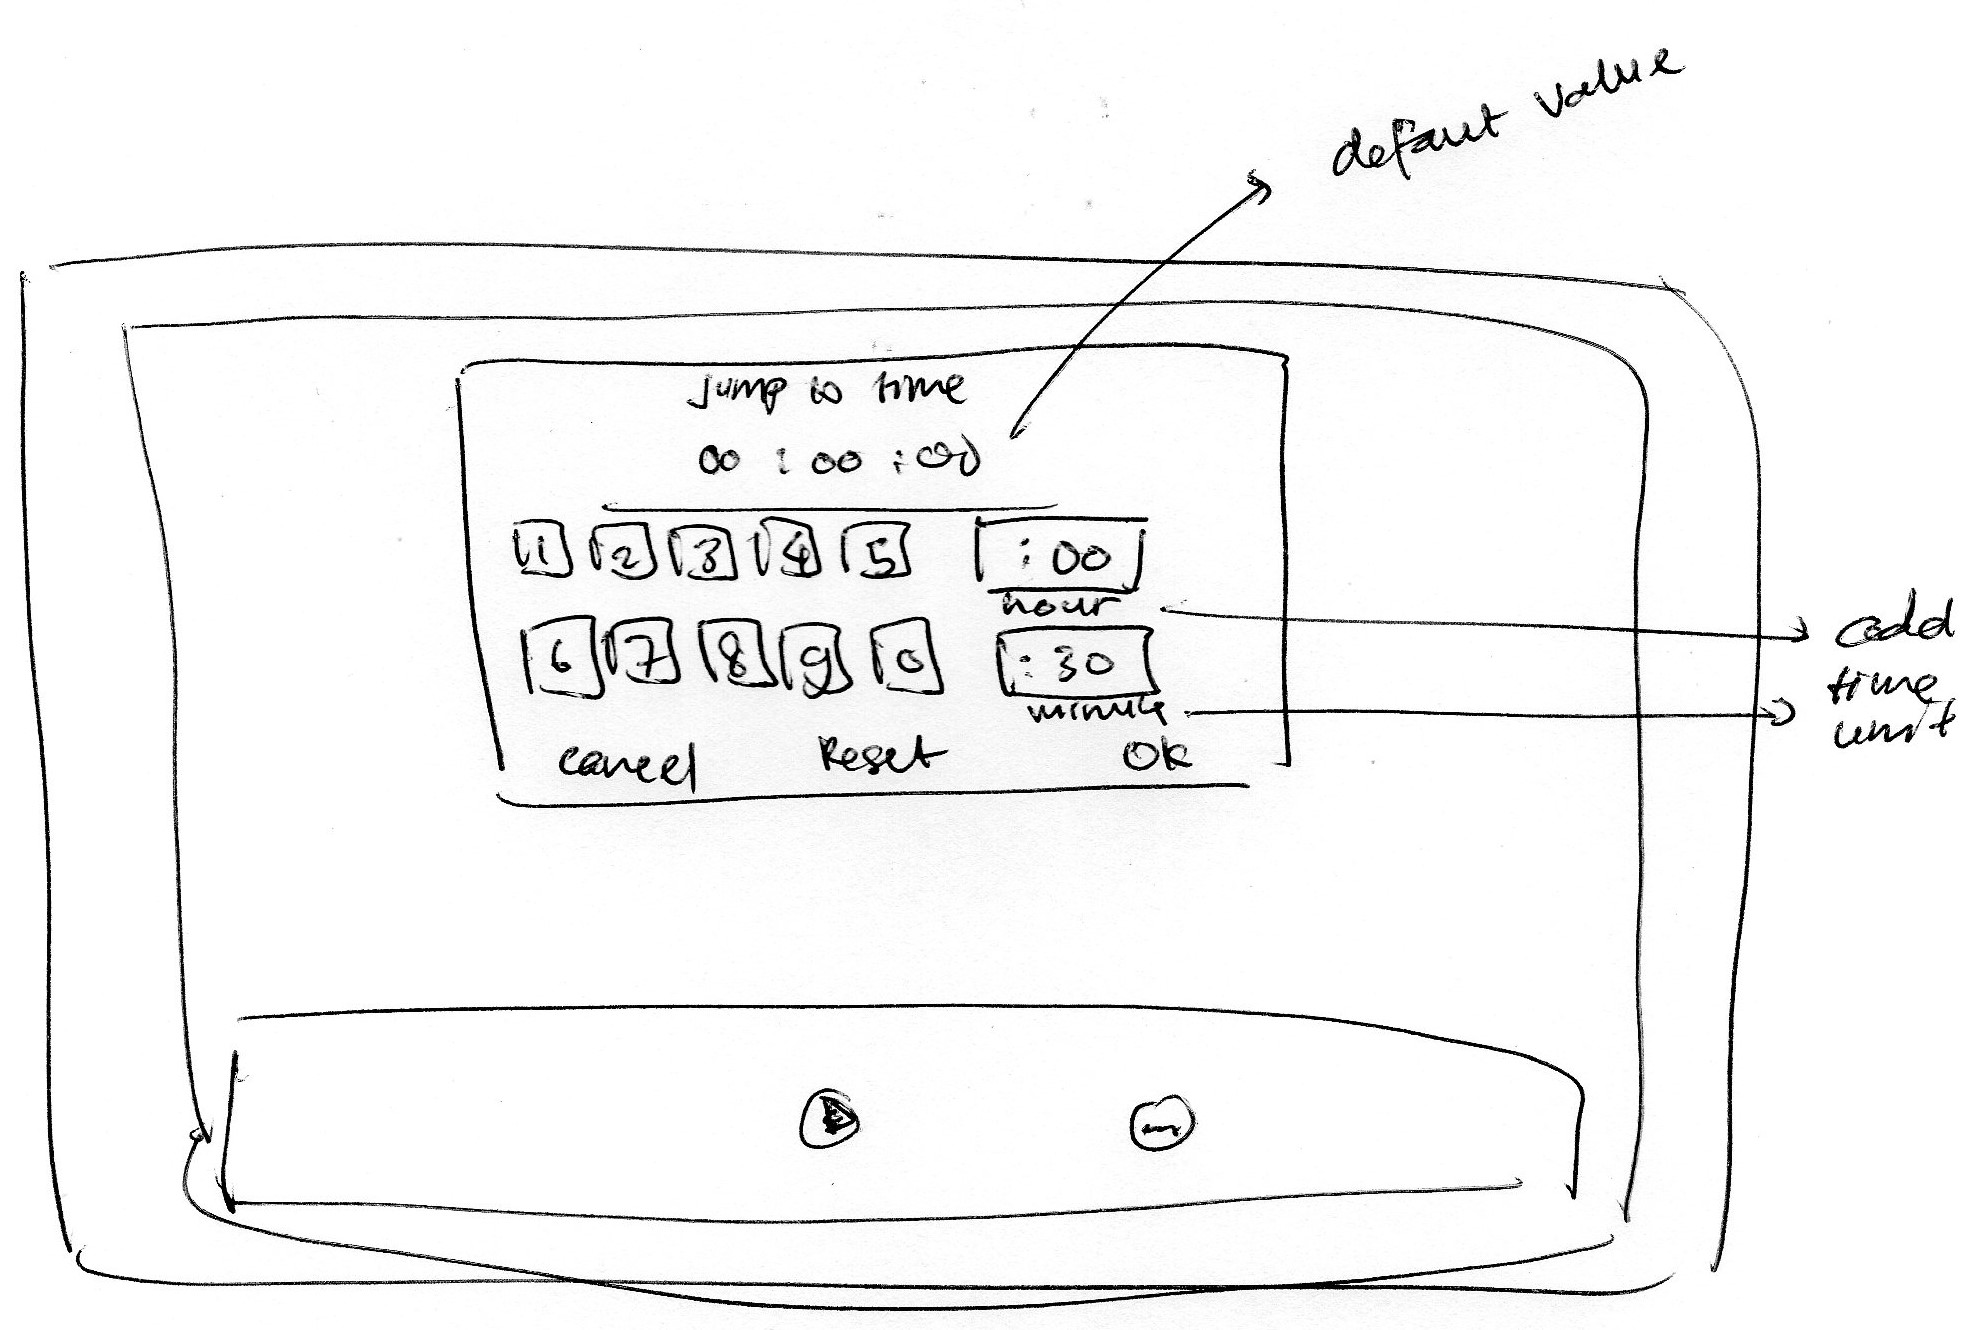 defaut value
Jump to time
00 : 00 : 00
1 2 3 4 5 : 00
hour
6 7 8 9 0 : 30
minute
cancel Reset OK
add
time
unit